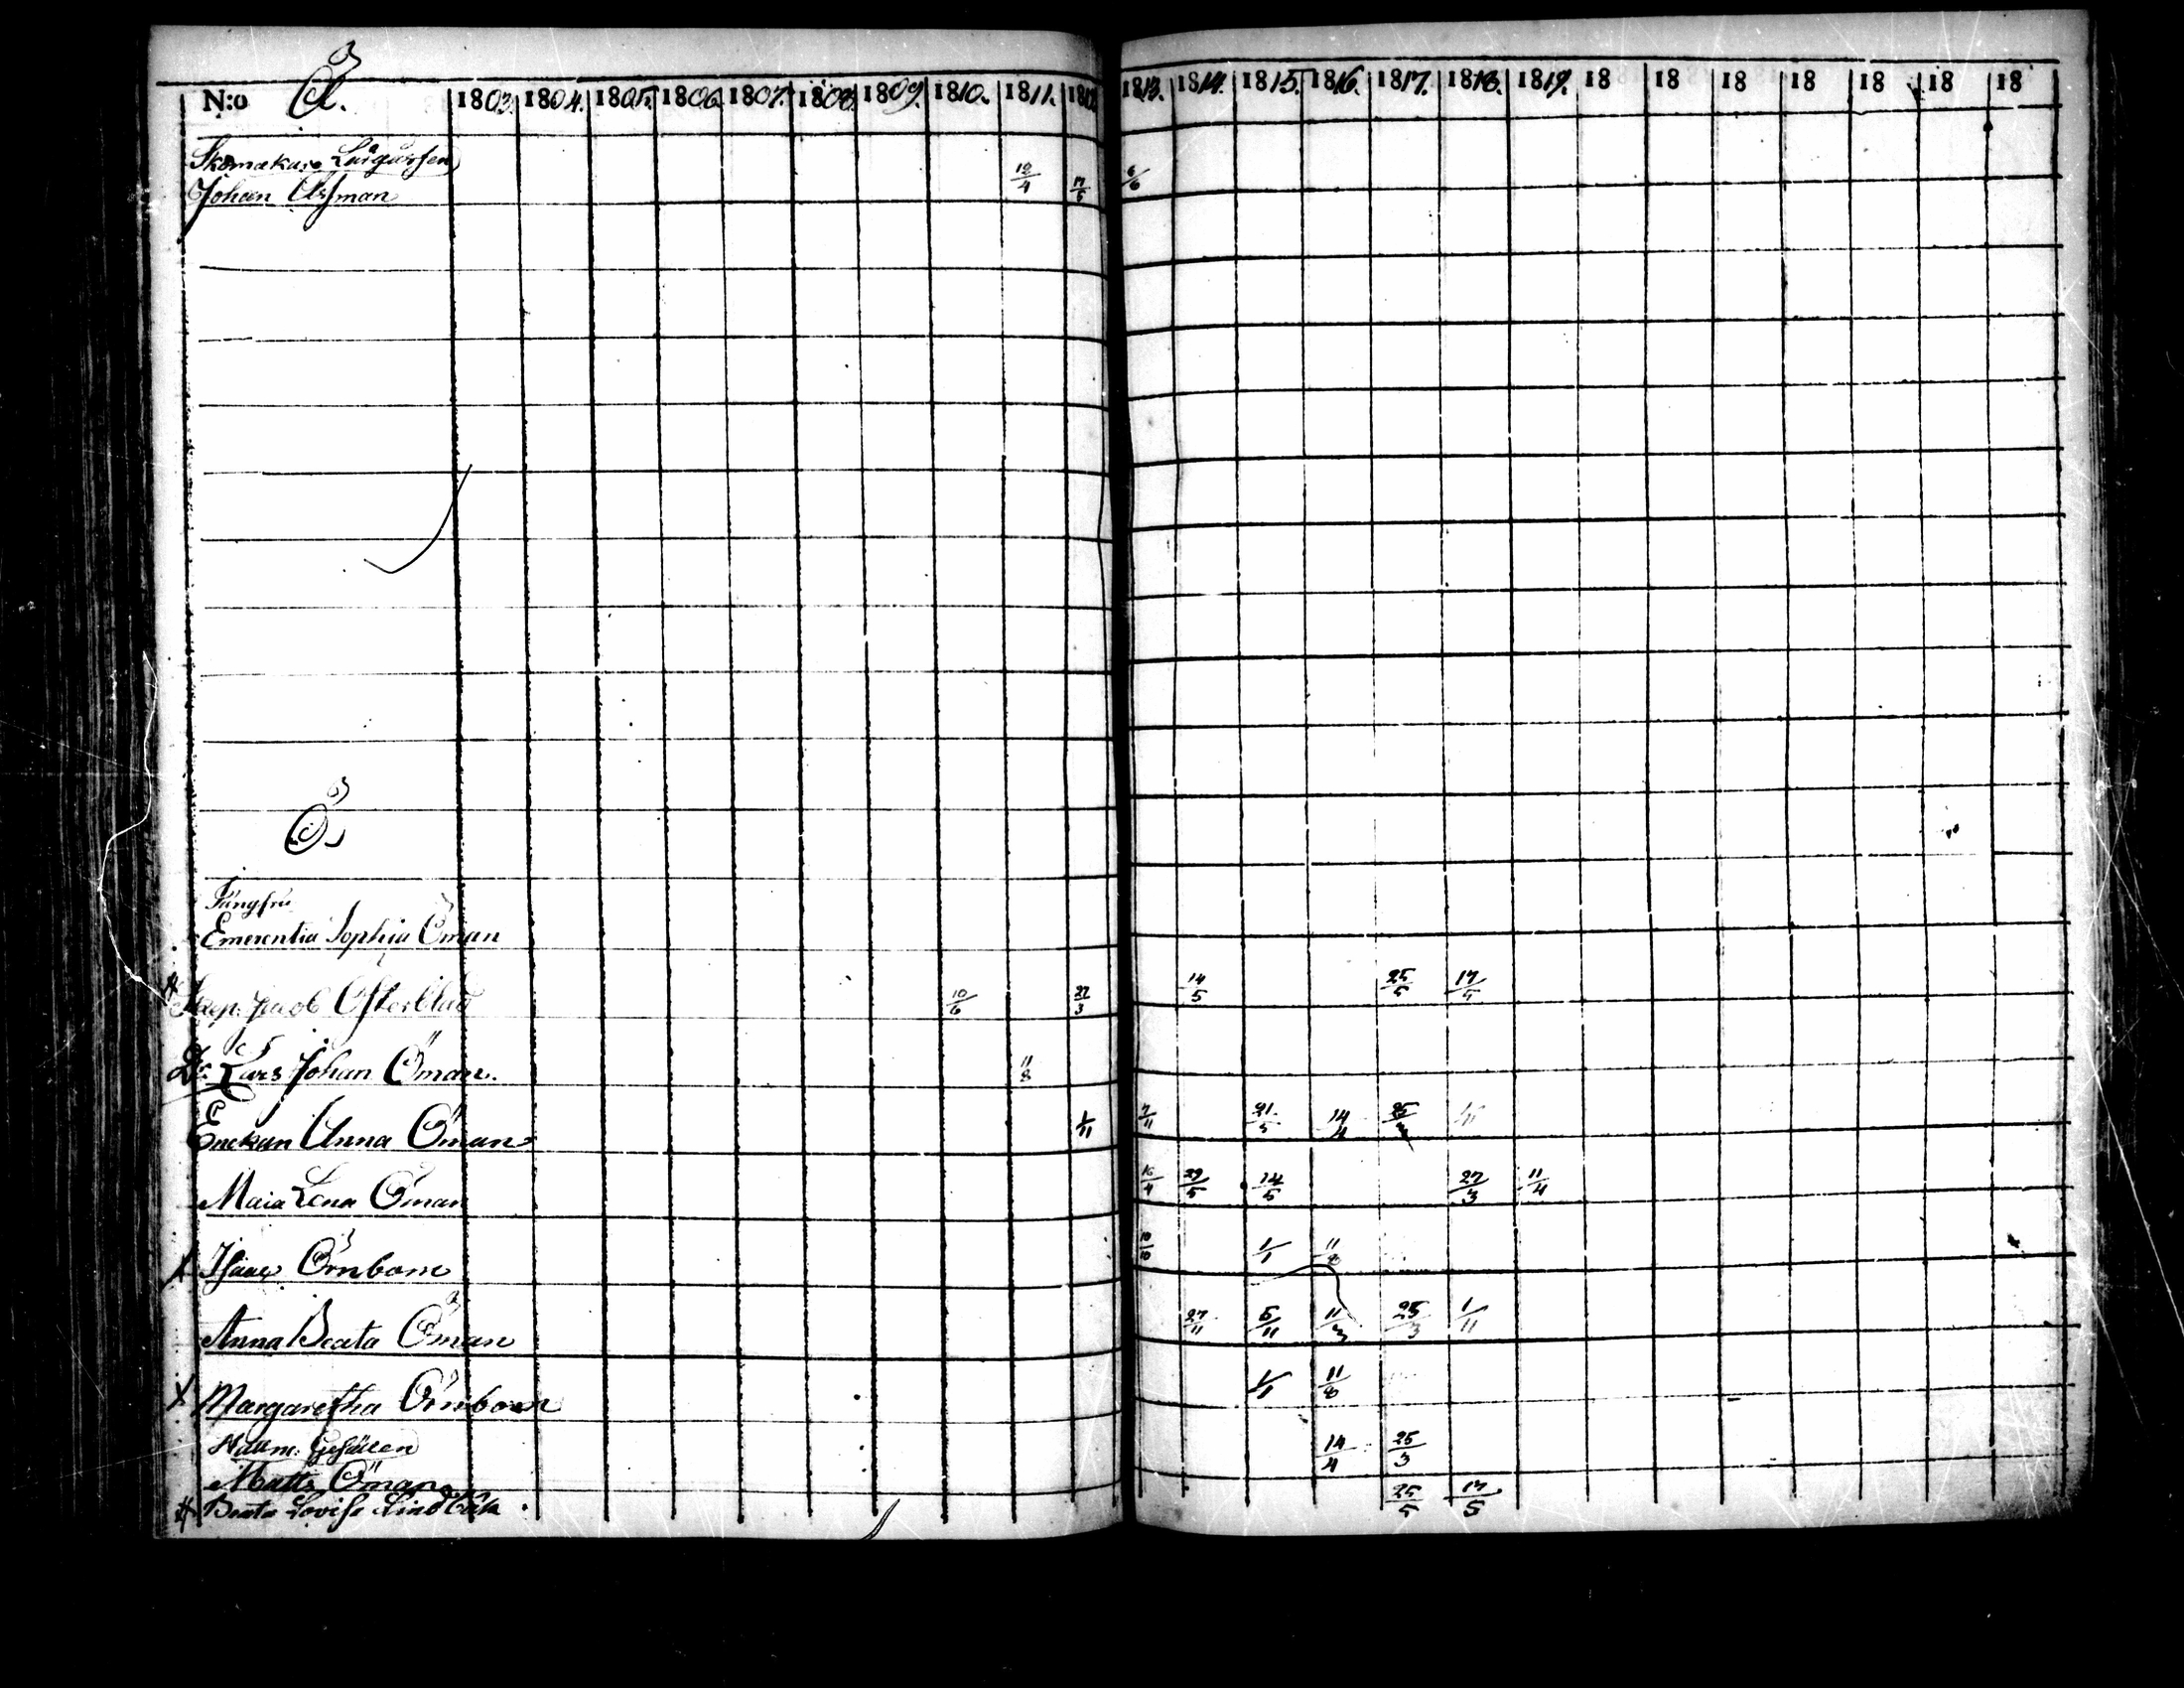 N:o Å. 1803. 1804. 1805. 1806. 1807. 1808. 1809. 1810. 1811. 1812 1813. 1814. 1815. 1816. 1817. 1818. 1819. 18 18 18 18 18 18 18
Skomakare
Johan Åhman 12/4 17/5 6/6
Ö.
Jungfru
Emerentia Sophia Öman
Jacob Österblad 10/6 22/3 14/5 25/5 17/5
Lars Johan Öman. 11/8
Enckan Anna Öman 1/11 7/11 21/5 14/4 25/3
Maia Lena Öman 16/4 29/5 14/5 27/3 11/4
Isaac Örnbom 10/10 1/1 11/8
Anna Beata Öman 27/11 5/11 11/3 25/3 1/11
Margaretha Örnbom 1/1 11/8
Gesällen 14/4 25/3
Matts Öman
Beata Lovisa 25/5 17/5